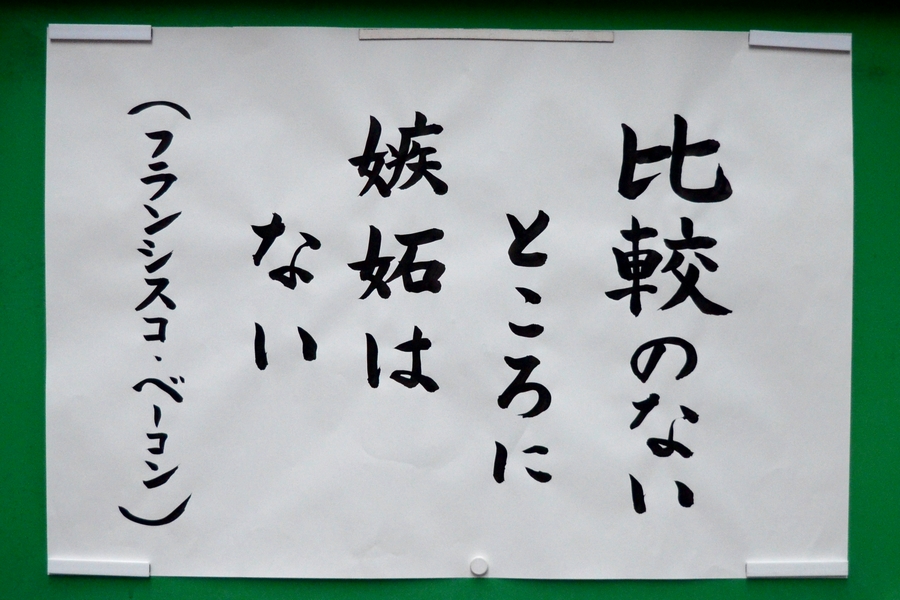 比較のない
ところに
嫉妬は
ない
（フランシスコ・ベーコン）